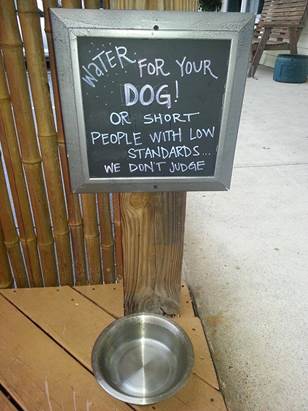 WATER FOR YOUR
DOG!
OR SHORT
PEOPLE WITH LOW
STANDARDS...
WE DON'T JUDGE